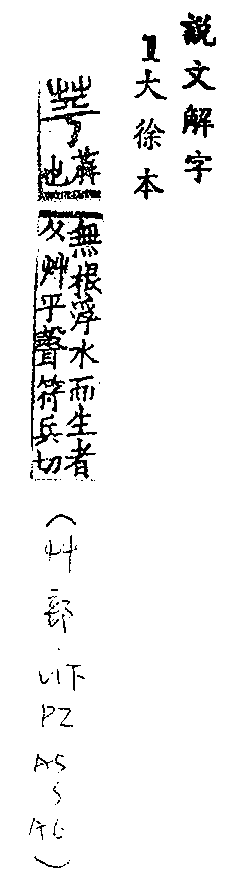 說文解字
1大徐本
苹
蓱
也
無根浮水而生者
从艸平聲符兵切
(艸部.下P2 A5 S A6)